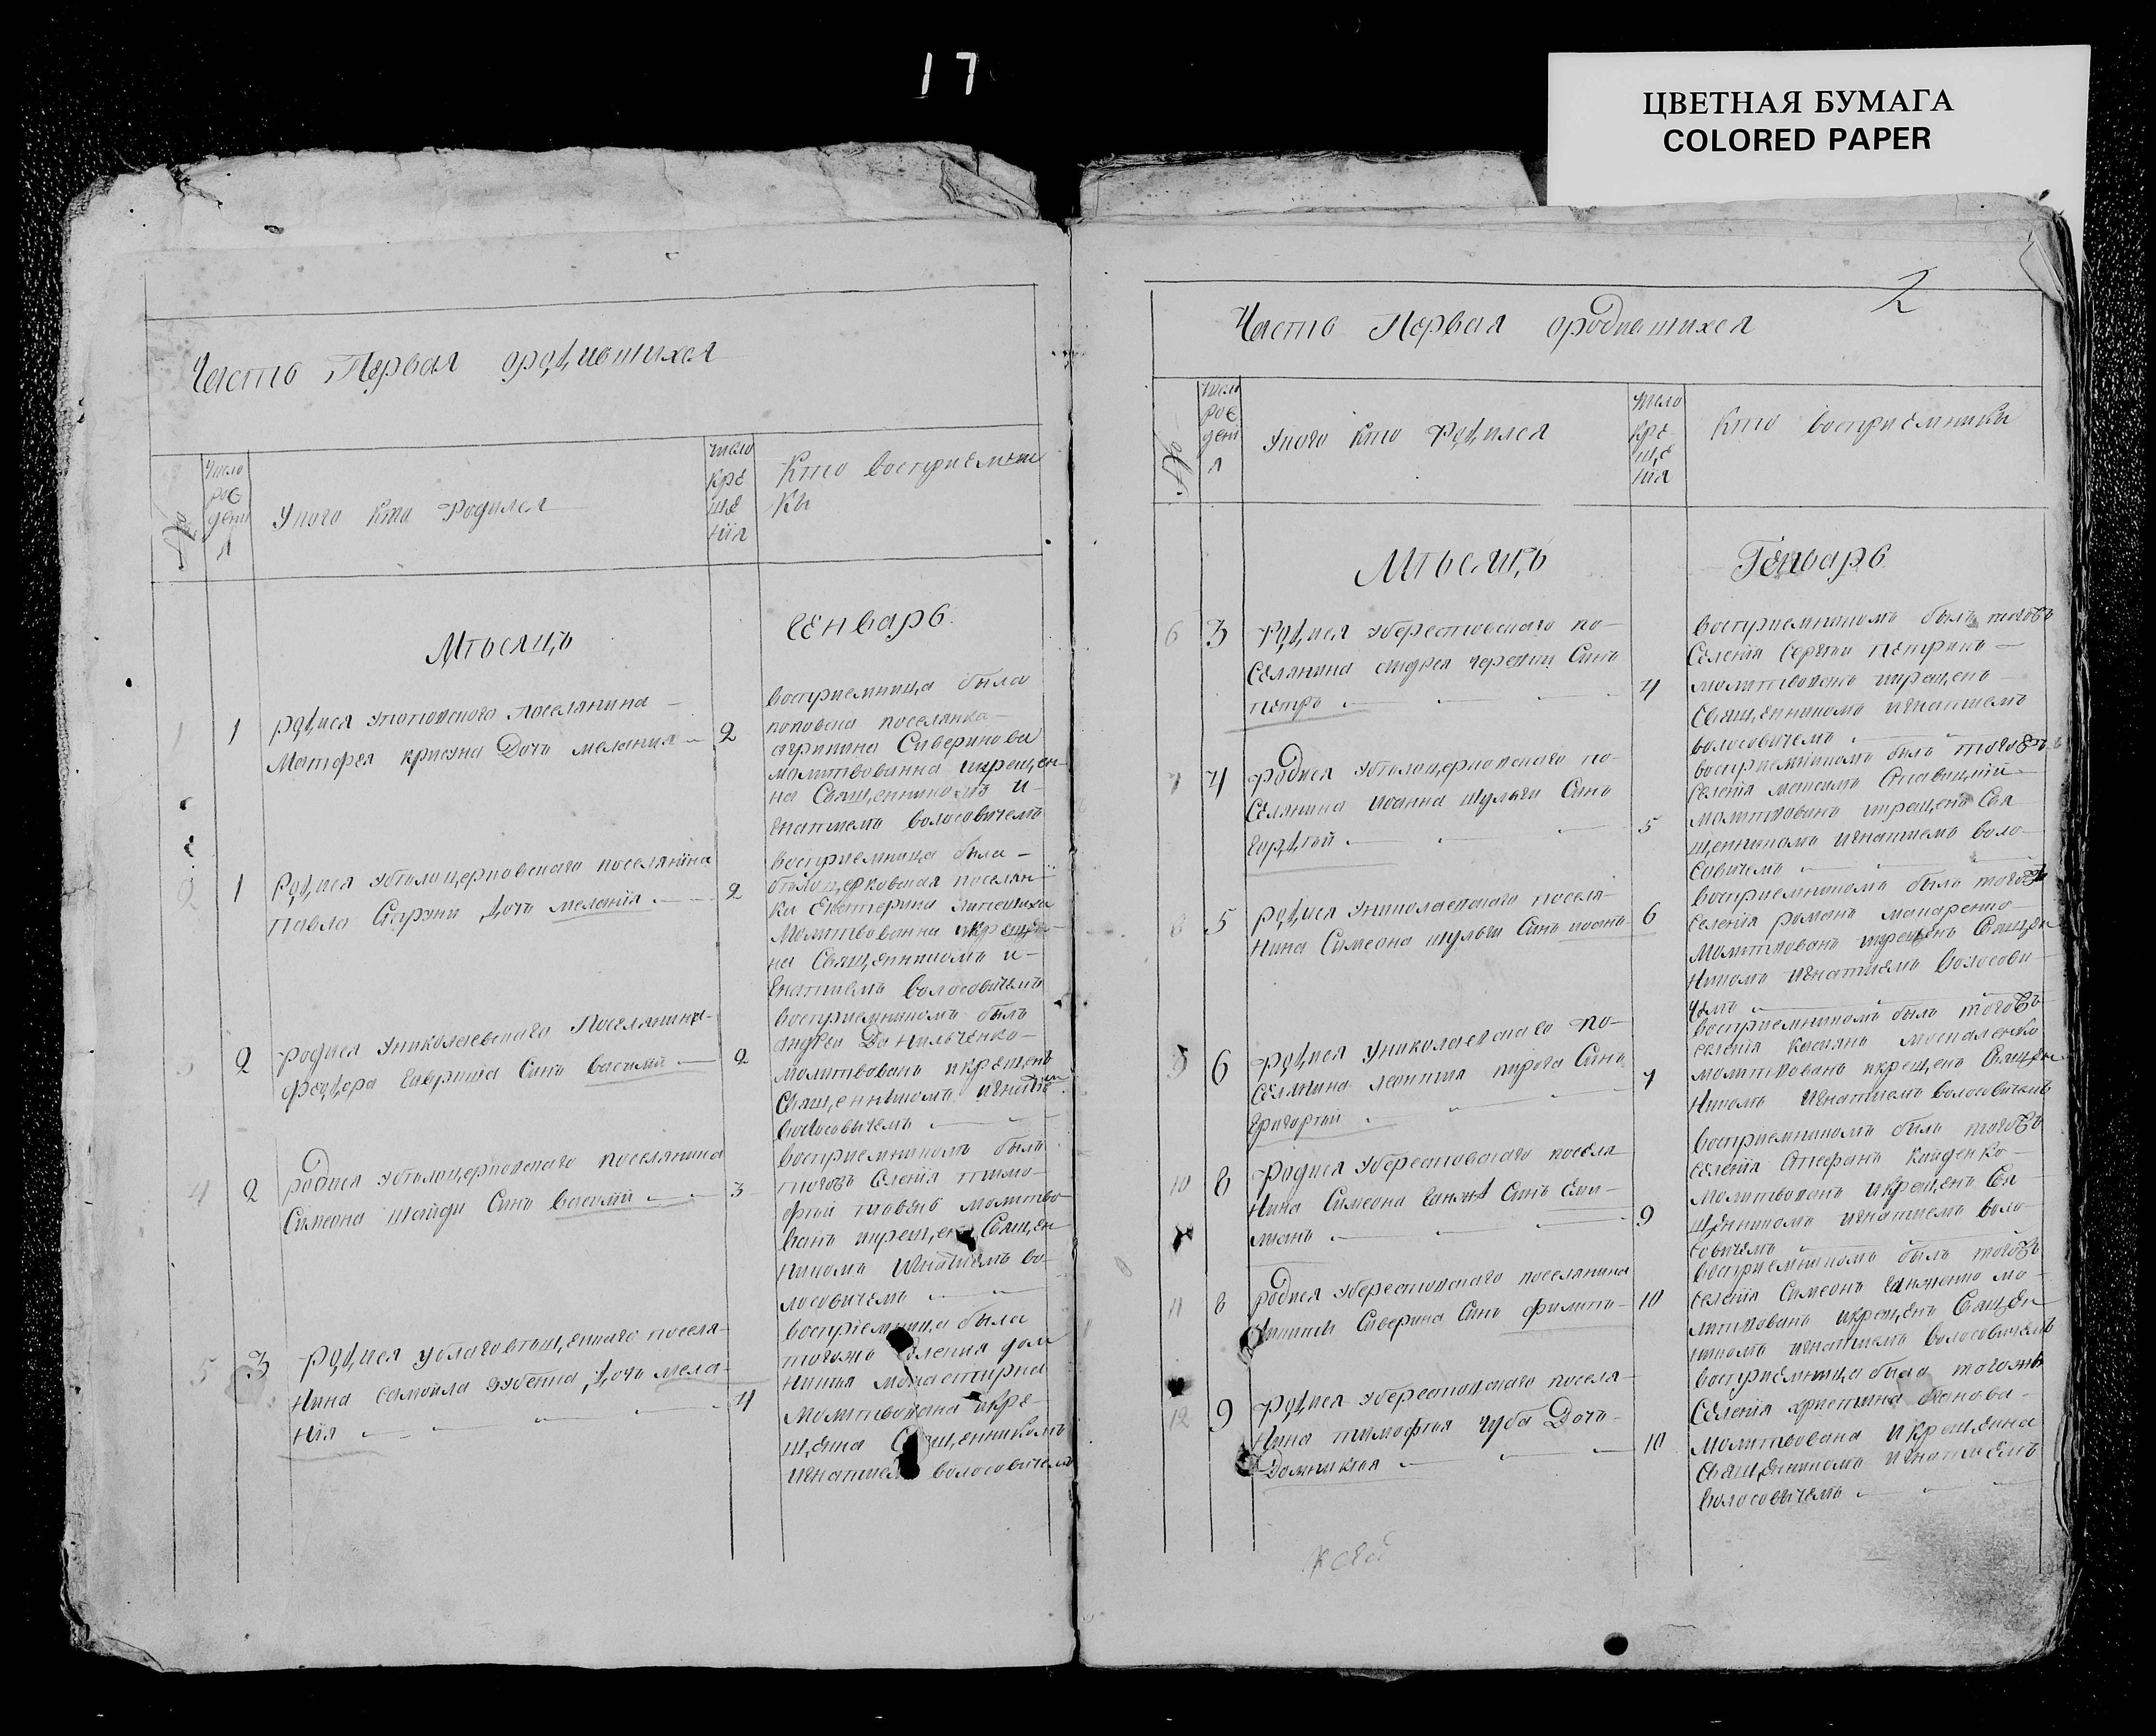 17
ЦВЕТНАЯ БУМАГА
COLORED PAPER
Часть Первая ородившихся
Число рож дени я
Укого кто Родился
число кре ще нїя
Кто восприемни
кы
Мѣсяцъ Генварь
1 1 родися Упоповского поселянина
Матфея Дочь мелания 2
восприемница была
поповска поселянка
агрипина Сиверинова
малитвованна икрещен-
на Священникомъ и-
гнатиемъ волосовичемъ
2 1 Родися Убѣлоцерковского поселянїна
Павла Дочь меланїя 2
восприемница была
бѣлоцерковская поселян-
ка Екатерина
Молитвованна икреще-
на Священникомъ и-
гнатиемъ волосовичемъ
3 2 родися Униколаевского Поселянина
Феодора Гавриша Синъ василий 2
восприемникомъ былъ
андрей Данильченко
молитвованъ икрещенъ
Священникомъ игнатием
волосовичемъ
4 2 родися Убѣлоцерковского поселянина
Симеона шайди Синъ Василий 3
восприемникомъ былъ
тогожъ Селенїя тимо-
фѣй молитво
ванъ икрещенъ Священ
никомъ игнатиемъ во-
лосовичемъ
5 3 родися Ублаговѣщенского поселя-
нина самойла Дочь мела-
нїя 4
восприемница была
тогожъ Селения дом
никия
Молитвована икре-
щенна Священникомъ
игнатиемъ волосовичемъ
2
Часть Первая ородившихся
Число рож дени я
Укого кто Родился
Число кре- ще нїя
Кто восприемники
Мѣсяцъ Генварь
6 3 Родися Уберестовского по-
селянина андрея Синъ
петръ 4
восприемникомъ былъ тогожъ
Селенїя Сергѣй
молитвованъ икрещенъ
Священникомъ игнатиемъ
волосовичемъ
7 4 Родися Убѣлоцерковского по-
селянина иоанна шульги Синъ
гордѣй 5
восприемникомъ былъ тогожъ
Селенїя максимъ
молитвованъ икрещенъ Свя
щенникомъ игнатиемъ воло-
совичемъ
8 5 родися Униколаевского поселя-
нина Симеона шульги Синъ иоанъ 6
восприемникомъ былъ тогожъ
Селенїя романъ макаренко
Молитвованъ икрещенъ Священ
никомъ игнатиемъ волосови-
чемъ
9 6 Родися Униколаевского по-
селянина леонтия пирога Синъ
григорїй 7
восприемникомъ былъ тогожъ
селенїя касиянъ москаленко
молитвованъ икрещенъ Священ
никомъ игнатиемъ волосовичемъ
10 8 Родися Уберестовского поселя
нина Симеона Синъ Еми-
лианъ 9
восприемникомъ былъ тогожъ
селенїя Стефанъ кайденко
молитвованъ икрещенъ Свя-
щенникомъ игнатиемъ воло-
совичемъ
11 8 родися Уберестовского поселянина
Сиверина Синъ филипъ 10
восприемникомъ былъ тогожъ
селенїя Симеонъ мо-
литвованъ икрещенъ Священ
никомъ игнатиемъ волосовичемъ
12 9 Родися Уберестовского поселя-
нина тимофѣя чуба Дочь
Домникїя 10
восприемница была тогожъ
Селенїя християна
молитвована икрещенна
Священникомъ игнатиемъ
волосовичемъ